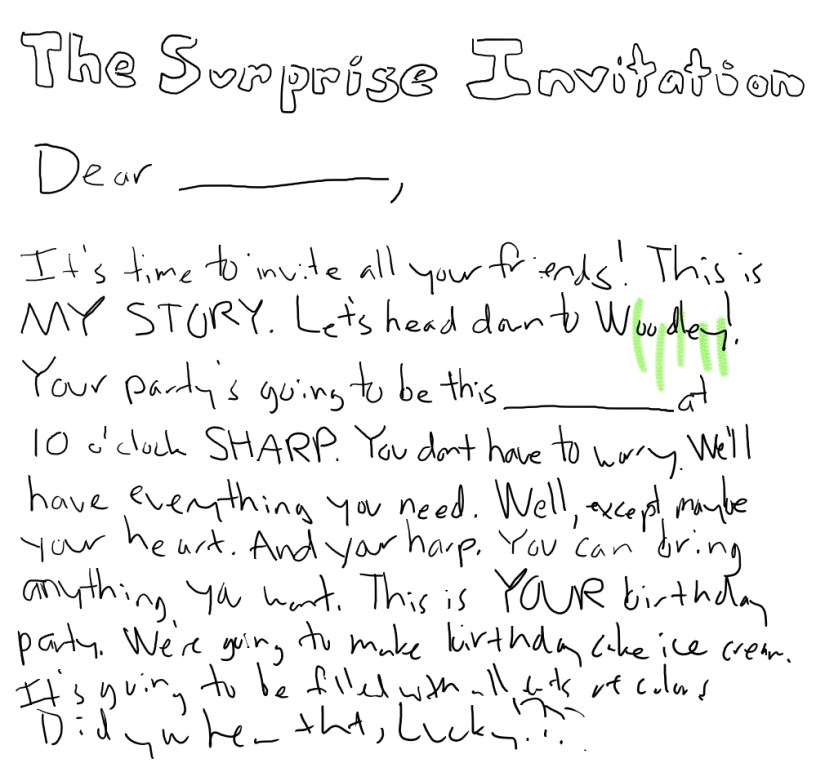 The Surprise Invitation
Dear ________,
It's time to invite all your friends! This is
MY STORY. Let's head down to Woodley!
Your party's going to be this ________ at
10 o'clock SHARP. You don't have to worry. We'll
have everything you need. Well, except maybe
your heart. And your harp. You can bring
anything you want. This is YOUR birthday
party. We're going to make birthday cake ice cream.
It's going to be filled with all of colors
Did you hear that, Lucky???